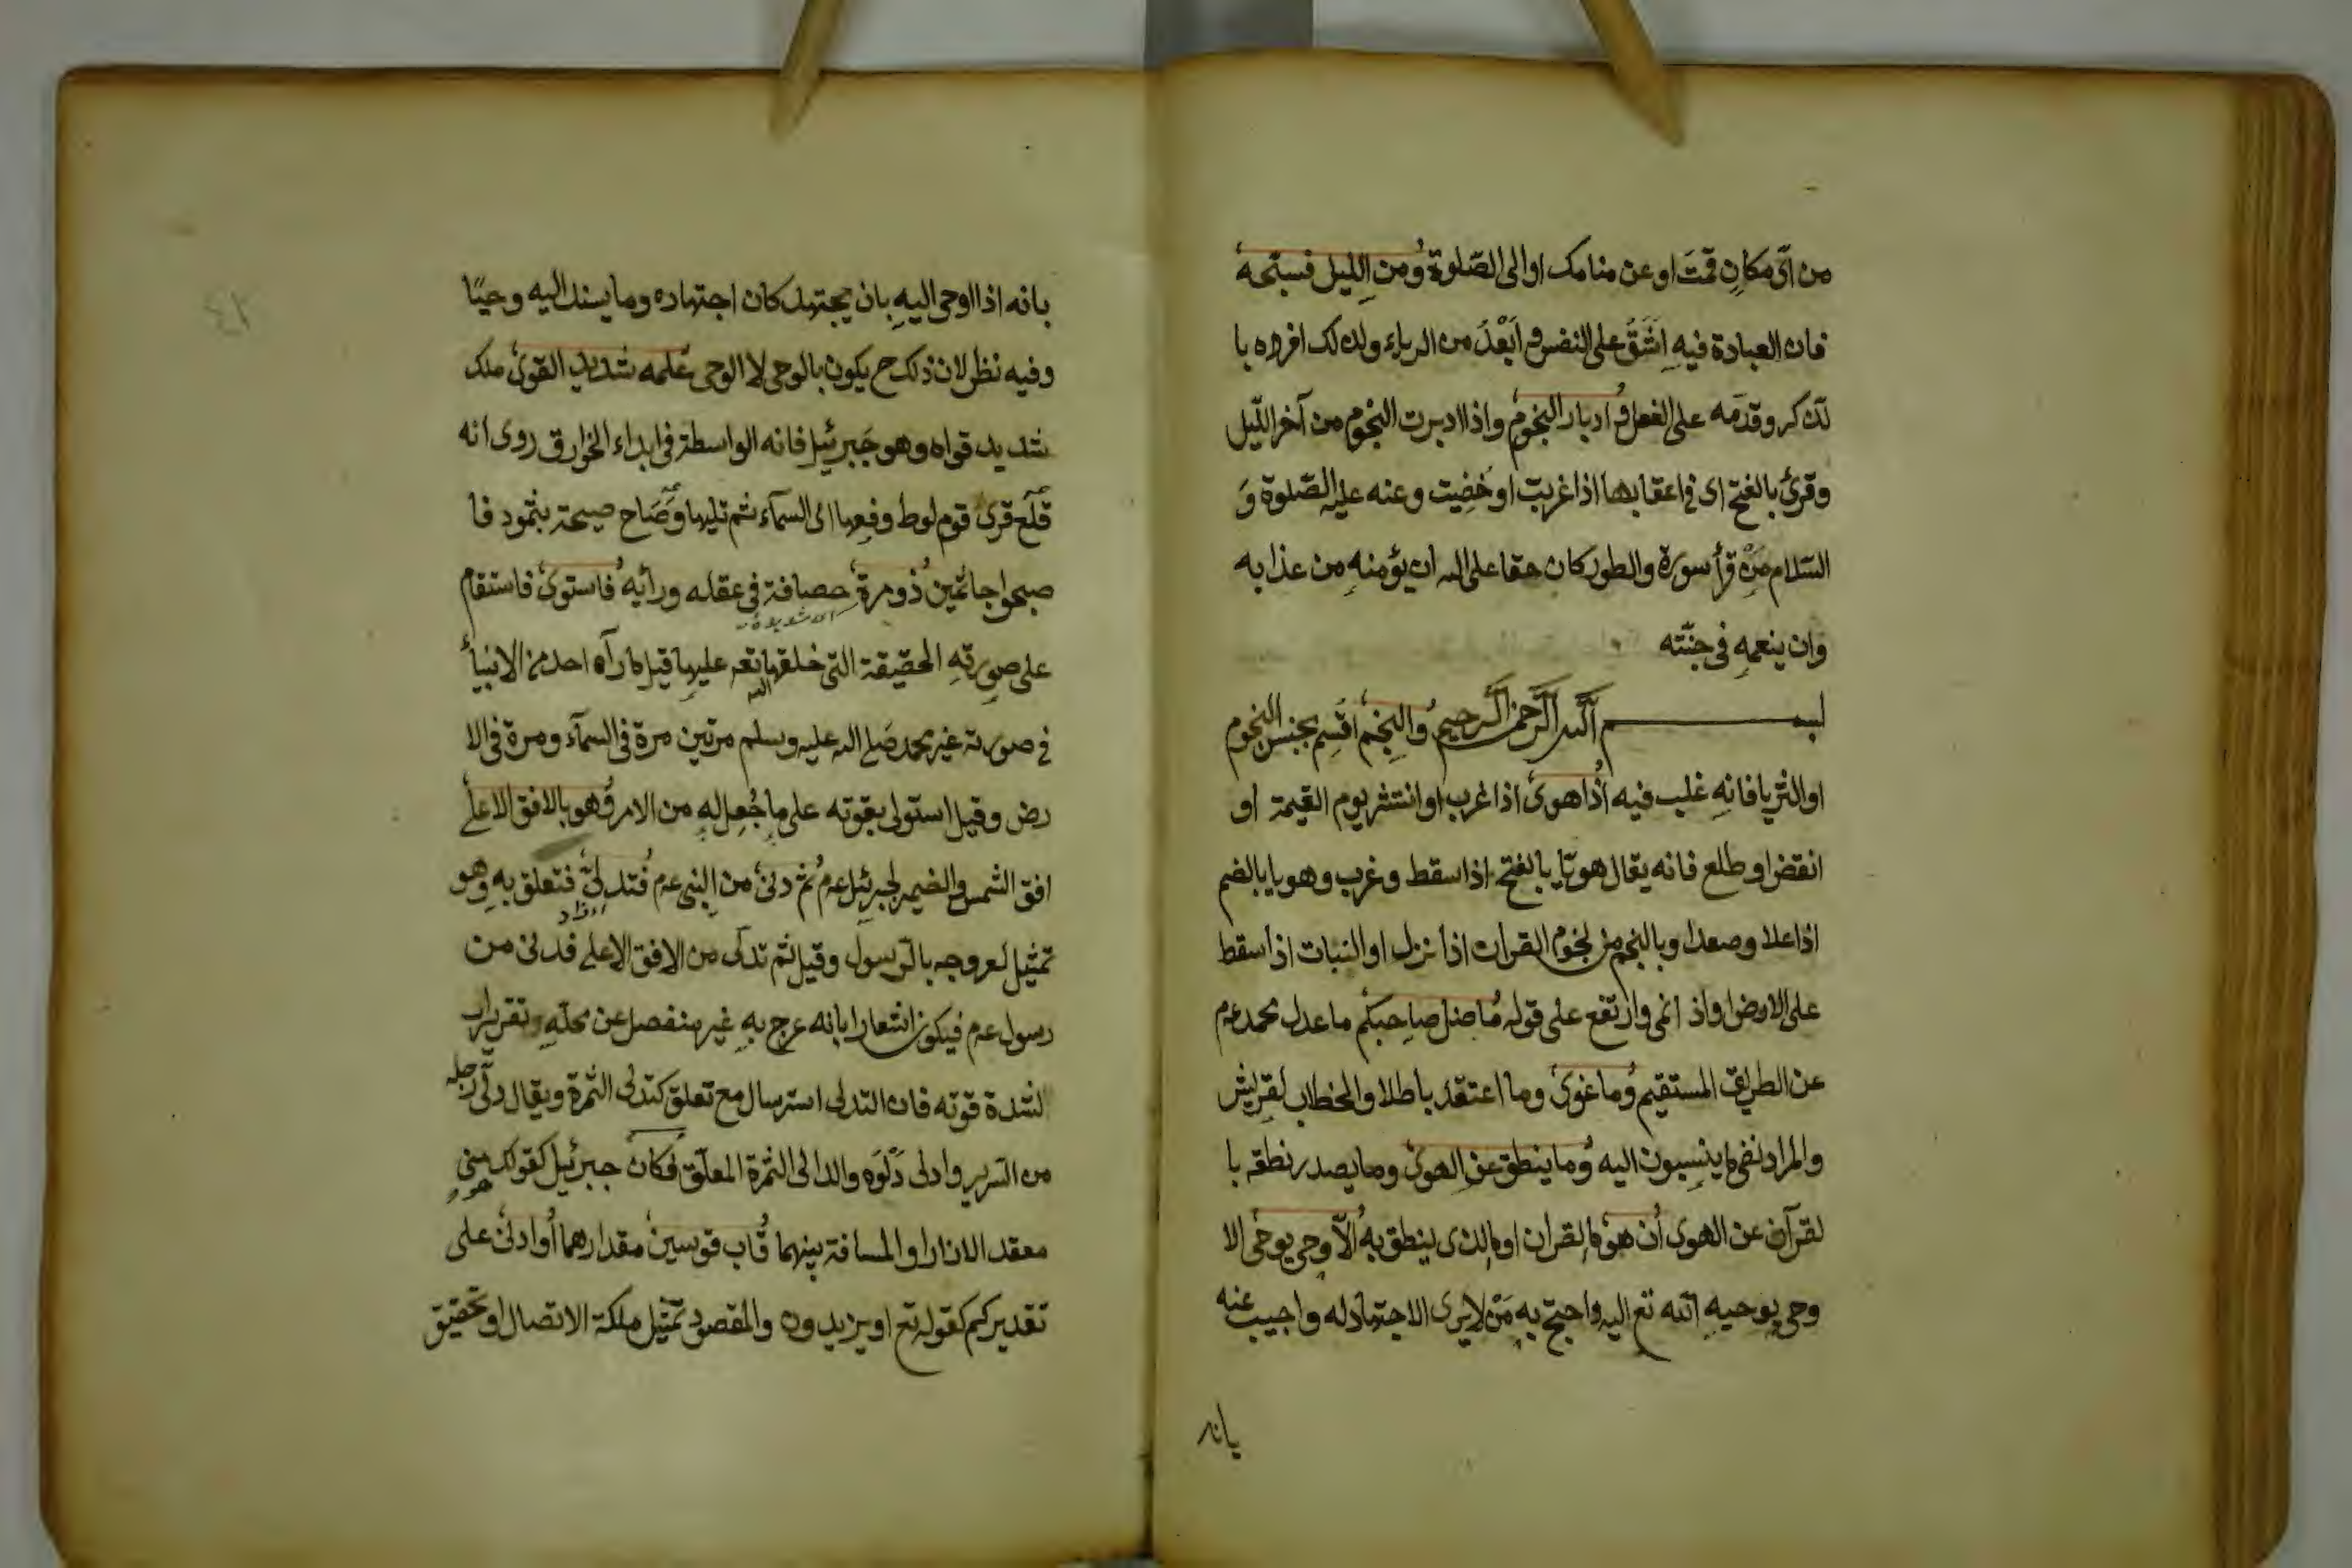 من اىّ مكانٍ قمتَ او عن منامك او الى الصّلوة ومن الليل فسبّحه
فان العبادة فيهِ اَشَقُّ على النفس و اَبْعَدُ من الرياء ولذلك افرده با
لذكر وقدّمه على الفعل و ادبار النجوم واذا ادبرت النجوم من آخر اللّيل
وقرئ بالفتح اى فى اعقابها اذا غربت او خفيت وعنه عليه الصّلوة وَ
السّلام مَنْ قرأ سورة والطور كان حقا على الله ان يؤمنهِ من عذابه
وان ينعمهِ فى جنّته
بسم اللّه الرّحمن الرّحيم والنجم اقسم بجنس النجوم
او الثريا فانهِ غلب فيه اذا هوى اذا غرب او انتثر يوم القيمة او
انقض او طلع فانه يقال هويّا بالفتح اذا سقط وغرب وهويا بالضم
اذا علا وصعدا وبالنجم من نجوم القران اذا نزل او النبات اذا سقط
على الارض او اذ انمى وارتفع على قوله ما ضل صاحبكم ما عدل محمد عم
عن الطريق المستقيم وما غوى وما اعتقد باطلا والخطاب لقريش
والمراد نفى ما ينسبون اليه وما ينطق عن الهوى وما يصدر نطقه با
لقرآن عن الهوى ان هو ما القران او ما الذى ينطق به الّا وحى يوحى الا
وحى يوحيهِ اللّه تع اليه واحتج به مَنْ لا يرى الاجتهاد له واجيب عنه
بانه
بانه اذا اوحى اليهِ بان يجتهد كان اجتهاده وما يسند اليه وحيًا
وفيه نظر لان ذلك ح يكون بالوحى لا الوحى علمه شديد القوى ملك
شديد قواه وهو جَبرئيل فانه الواسطة فى ابداء الخوارق روى انه
قلَع قرى قوم لوط وفعها الى السمآء ثم قلبها وصَاح صيحة بثمود فا
صبحوا جاثمين ذو مرة حصافة فى عقله ورأيه فاستوى فاستقام
اى شديدة
على صورتهِ الحقيقة التى خلقها تع عليها قيل ما رآه احد من الانبيأ
الله
فى صورته غير محمد صلى الله عليه وسلم مرتين مرة فى السمآء ومرة فى الا
رض وقيل استولى بقوته على ما جُعِل له من الامر وهو بالافق الاعلى
افق الشمس والضمير لجبرئيل عم ثم دنى من النبى عم فتدلى فتعلق به وهو
تمثيل لعروجه بالرّسول وقيل ثم تدلى من الافق الاعلى فدنى من
رسول عم فيكون اشعارا بانه عرج به غير منفصل عن محلّهِ وتقريرا
لشدة قوته فان التدلى استرسال مع تعلق كتدلى الثمرة ويقال دلّى رجله
من السّرير وادلى دَلْوَه والدالى الثمرة المعلّق فكان جبرئيل كقولك منى
هو
معقد الازارا والمسافة بينهما قاب قوسين مقدارهما او ادنى على
تقديركم كقوله تع او يزيدون والمقصود تمثيل ملكة الاتصال و تحقيق